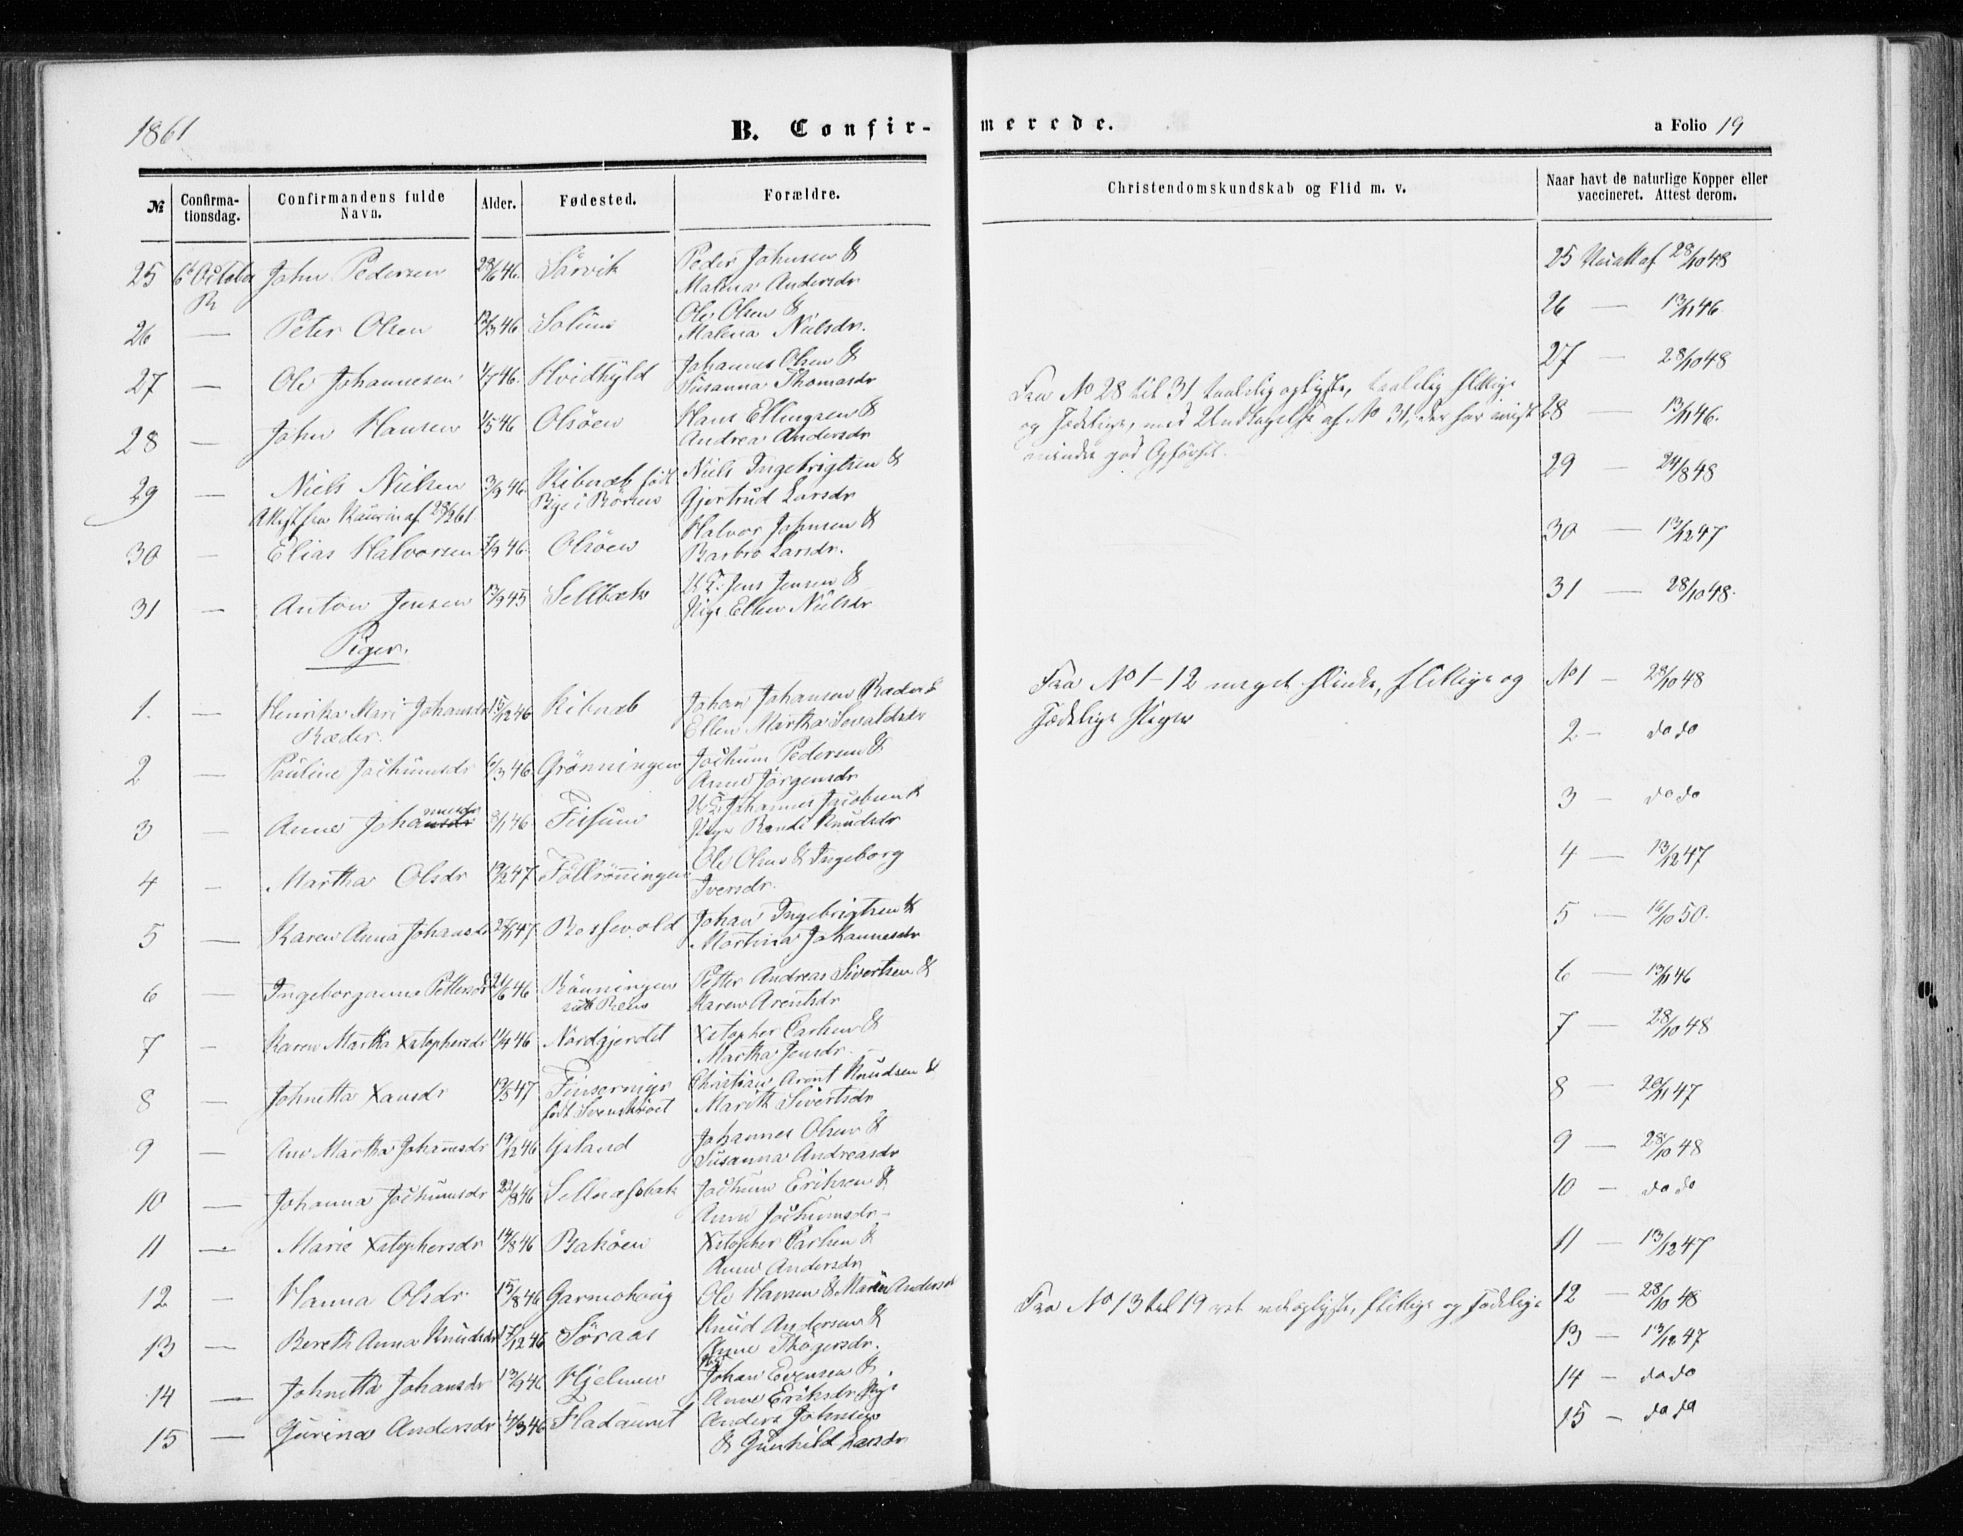 1861
B. Confir-
merede.
a Folio 19
№ Confirma-tionsdag. Confirmandens fulde Navn. Alder. Fødested. Forældre. Christendomskundskab og Flid m. v. Naar havt de naturlige Kopper eller vaccineret. Attest derom.
25 6 October John Pedersen 28/6 46 Sørvik Peder Johnsen & 25 28/10 48
R Malena Andersdr
26 — Peter Olsen 12/3 46 Solum Ole Olsen & 26 — 13/11 46
Malena Nielsdr.
27 — Ole Johannesen 1/7 46 Hvidhyld Johannes Olsen & 27 — 28/10 48
Susanna Thomasdr
Fra No 28 til 31 taalelig oplyste, taalelig flittige
28 — John Hansen 1/5 46 Olsöen Hans Ellingsen & og sædelige, med Undtagelse af No 31, der har 28 — 13/11 46.
Andrea Andersdr mindre god Opførsel.
29 — Niels Nielsen 3/9 46 Ribnæb født Niels Ingebrigtsen & 29 — 24/8 48
Attest fra 28/2 61 Gjertrud Larsdr
30 — Elias Halvorsen 7/9 46 Olsöen Halvor Johnsen & 30 — 13/12 47
Barbro Larsdr.
31 — Anton Jensen 13/9 45 Sellbæk U. K. Jens Jensen & 31 — 28/10 48.
Pige Ellen Nielsdr
Piger.
1. — Henrika Mari Johansdr 15/12 46 Ribnæb Johan Johansen Ræder & Fra No 1-12 meget flinke, flittige og No 1 — 28/10 48
Ræder. Ellen Martha sædelige Piger
2 — Pauline Jochumsdr 6/3 46 Grønningen Jochum Pedersen & 2 — do do
Anne Jörgensdr
3 — Anne Johannesdr 8/1 46 Johannes Jacobsen & 3 — do do
Pige Randi Knudsdr
4 — Martha Olsdr 19/2 47 Ole Olsen & Ingeborg 4 — 13/12 47
Iversdr.
5 — Karen Anna Johansdr 27/1 47 Rossevold Johan Ingebrigtsen & 5 — 16/10 50.
Martina Johannesdr
6 — Ingeborganna Pettersdr 21/6 46 Rönningen Petter Andreas Sivertsen & 6 — 13/11 46
Karen Arentsdr
7 — Karen Martha Xstophersdr 11/4 46 Nordgjerdet Xstopher Carlsen & 7 — 28/10 48
Martha Jensdr.
8 — Johnetta Xansdr 19/5 47 Christian Arent Knudsen & 8 — 20/11 47
født Marith Sivertsdr
9 — Ane Martha Johanesdr 19/12 46 Ysland Johannes Olsen & 9 — 28/10 48
Susanna Andreasdr
10 — Johanna Jochumsdr 22/8 46 Sellnæsbak Jochum Eriksen & 10 — do do
Anne Jochumsdr
11 — Marie Xstophersdr 14/8 46 Baköen Xstopher Carlsen & 11 — 13/12 47
Anne Andersdr
12 — Hanna Olsdr 15/8 46 Garmohoug Ole Hansen & Maren Andersdr 12 — 28/10 48
Fra No 13 til 19 ret vel oplyste, flittige og sædelige
13 — Bereth Anna Knudsdr 17/12 46 Söraas Knud Andersen & 13 — 13/12 47
Anne
14 — Johnetta Johansdr 13/9 46 Hjelmen Johan Evensen & 14 — do do
Anne Eriksdr Pige
15 — Gurina Andersdr 4/3 46 Fladauret Anders Johnsen 15 — do do
& Gunhild Larsdr